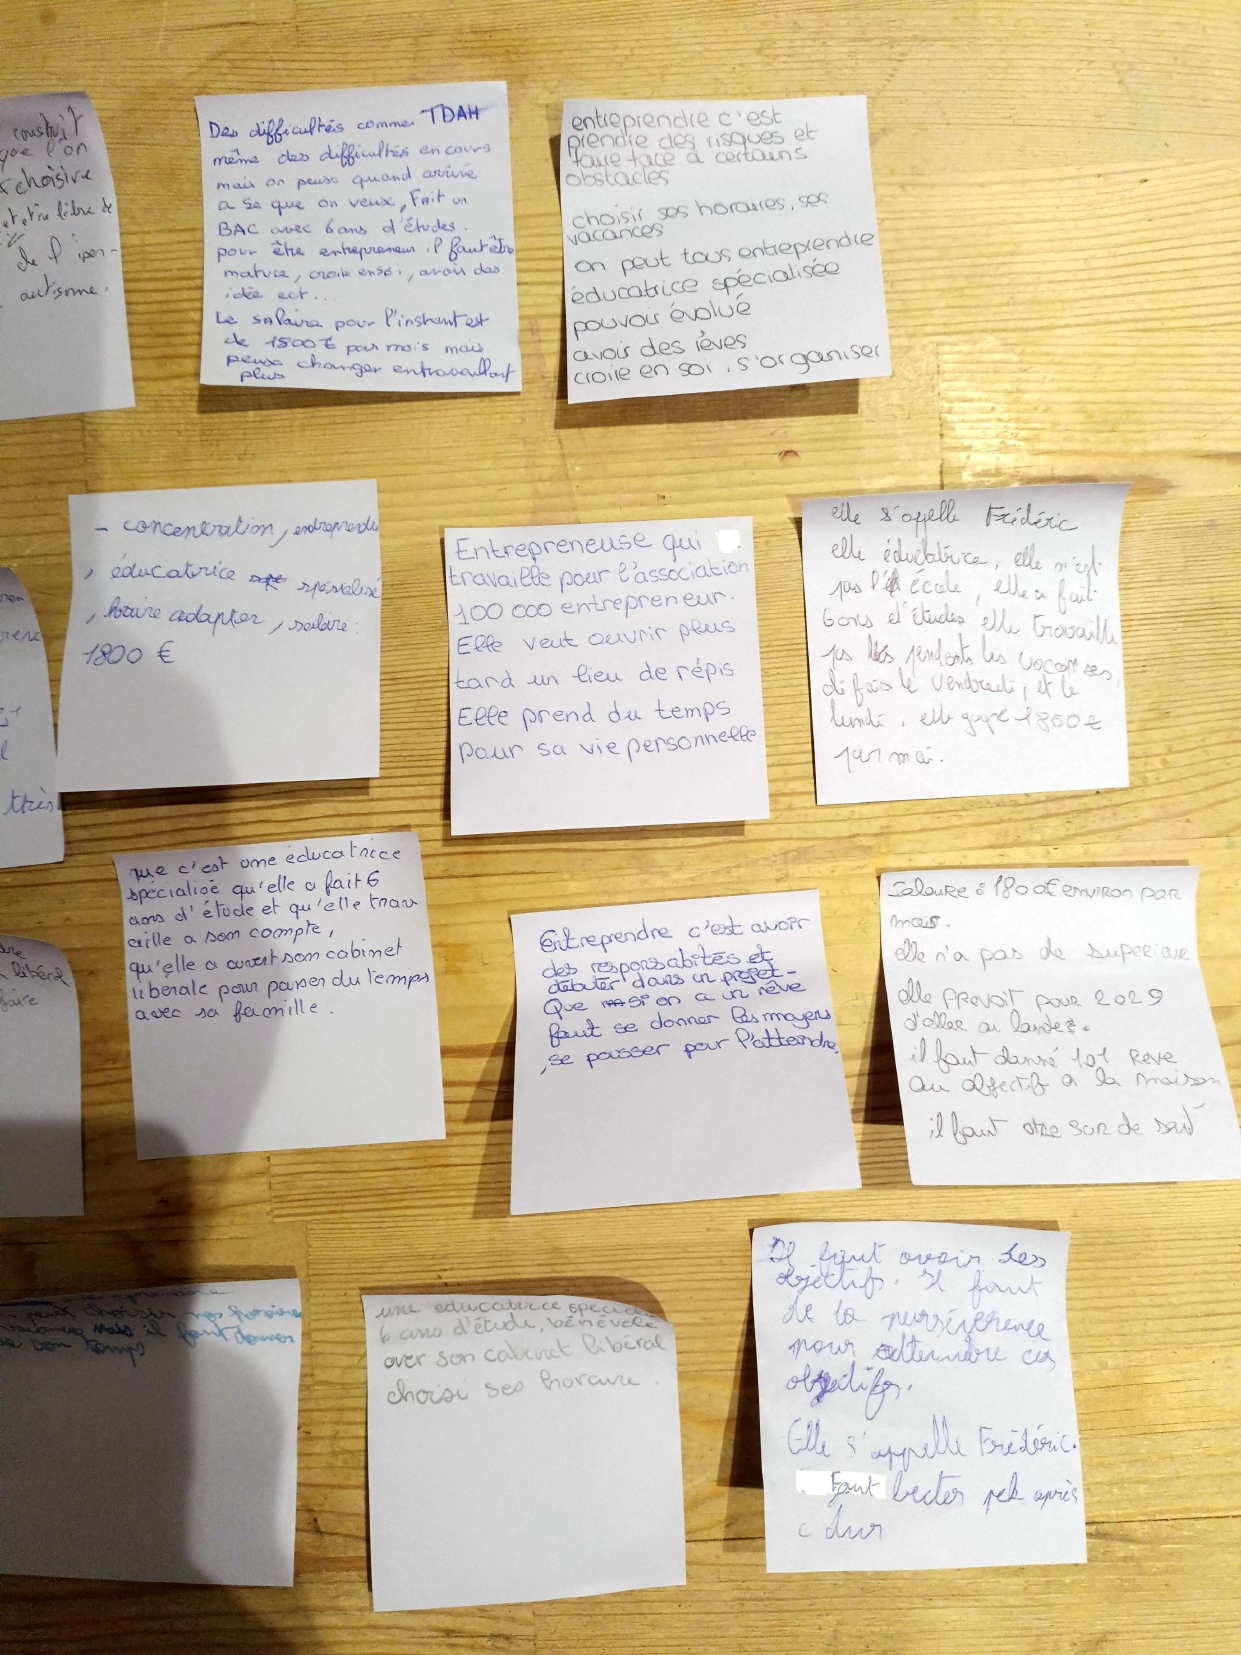 construit
que l'on
choisire
et etre libre de
de l'iper-
autisme.
Des difficultés comme TDAH
même des difficultés en cours
mais on peux quand arrivé
a se que on veux, Fait un
BAC avec 6 ans d'études.
pour être entrepreneur il faut être
mature, croire en soi, avoir des
idée ect...
Le salaire pour l'instant est
de 1800 € par mois mais
peux changer en travaillant
plus
entreprendre c'est
prendre des risques et
faire face à certains
obstacles
choisir ses horaires, ses
vacances
on peut tous entreprendre
éducatrice spécialisée
pouvoir évolué
avoir des rêves
croire en soi, s'organiser
- concentration, entreprendre
, éducatrice spésialisé
, horaire adapter, salaire :
1800 €
Entrepreneuse qui
travaille pour l'association
100 000 entrepreneur.
Elle veut ouvrir plus
tard un lieu de répis
Elle prend du temps
pour sa vie personnelle.
elle s'appelle Frédéric
elle éducatrice, elle n'est
pas l'école, elle a fait
6 ans d'études elle travaille
pas les pendents les vacances,
di fais le vendredi, et le
lundi. elle gagne 1800 €
par moi.
très
que c'est une éducatrice
spécialisé qu'elle a fait 6
ans d'étude et qu'elle trav
aille a son compte,
qu'elle a ouvert son cabinet
liberale pour passer du temps
avec sa famille.
Entreprendre c'est avoir
des responsabités et
débuter dans un projet-
Que si on a un rêve
faut se donner les moyens
, se pousser pour l'atteindre.
Salaire : 1800€ environ par
mois.
elle n'a pas de superieur
elle prevoit pour 2029
d'aller au landes.
il faut donné 101 Reve
au objectif a la maison
il faut etre sur de soit
libéral
faire
choisir nos horaires
il faut donner
son temps
une educatrice spécial
6 ans d'étude, bénévole
over son cabinet libéral
choisi ses horaire.
Il faut avoir des
objectifs. Il faut
de la persévérence
pour attendre ces
objectifs.
Elle s'appelle Frédéric.
Faut après
c dur